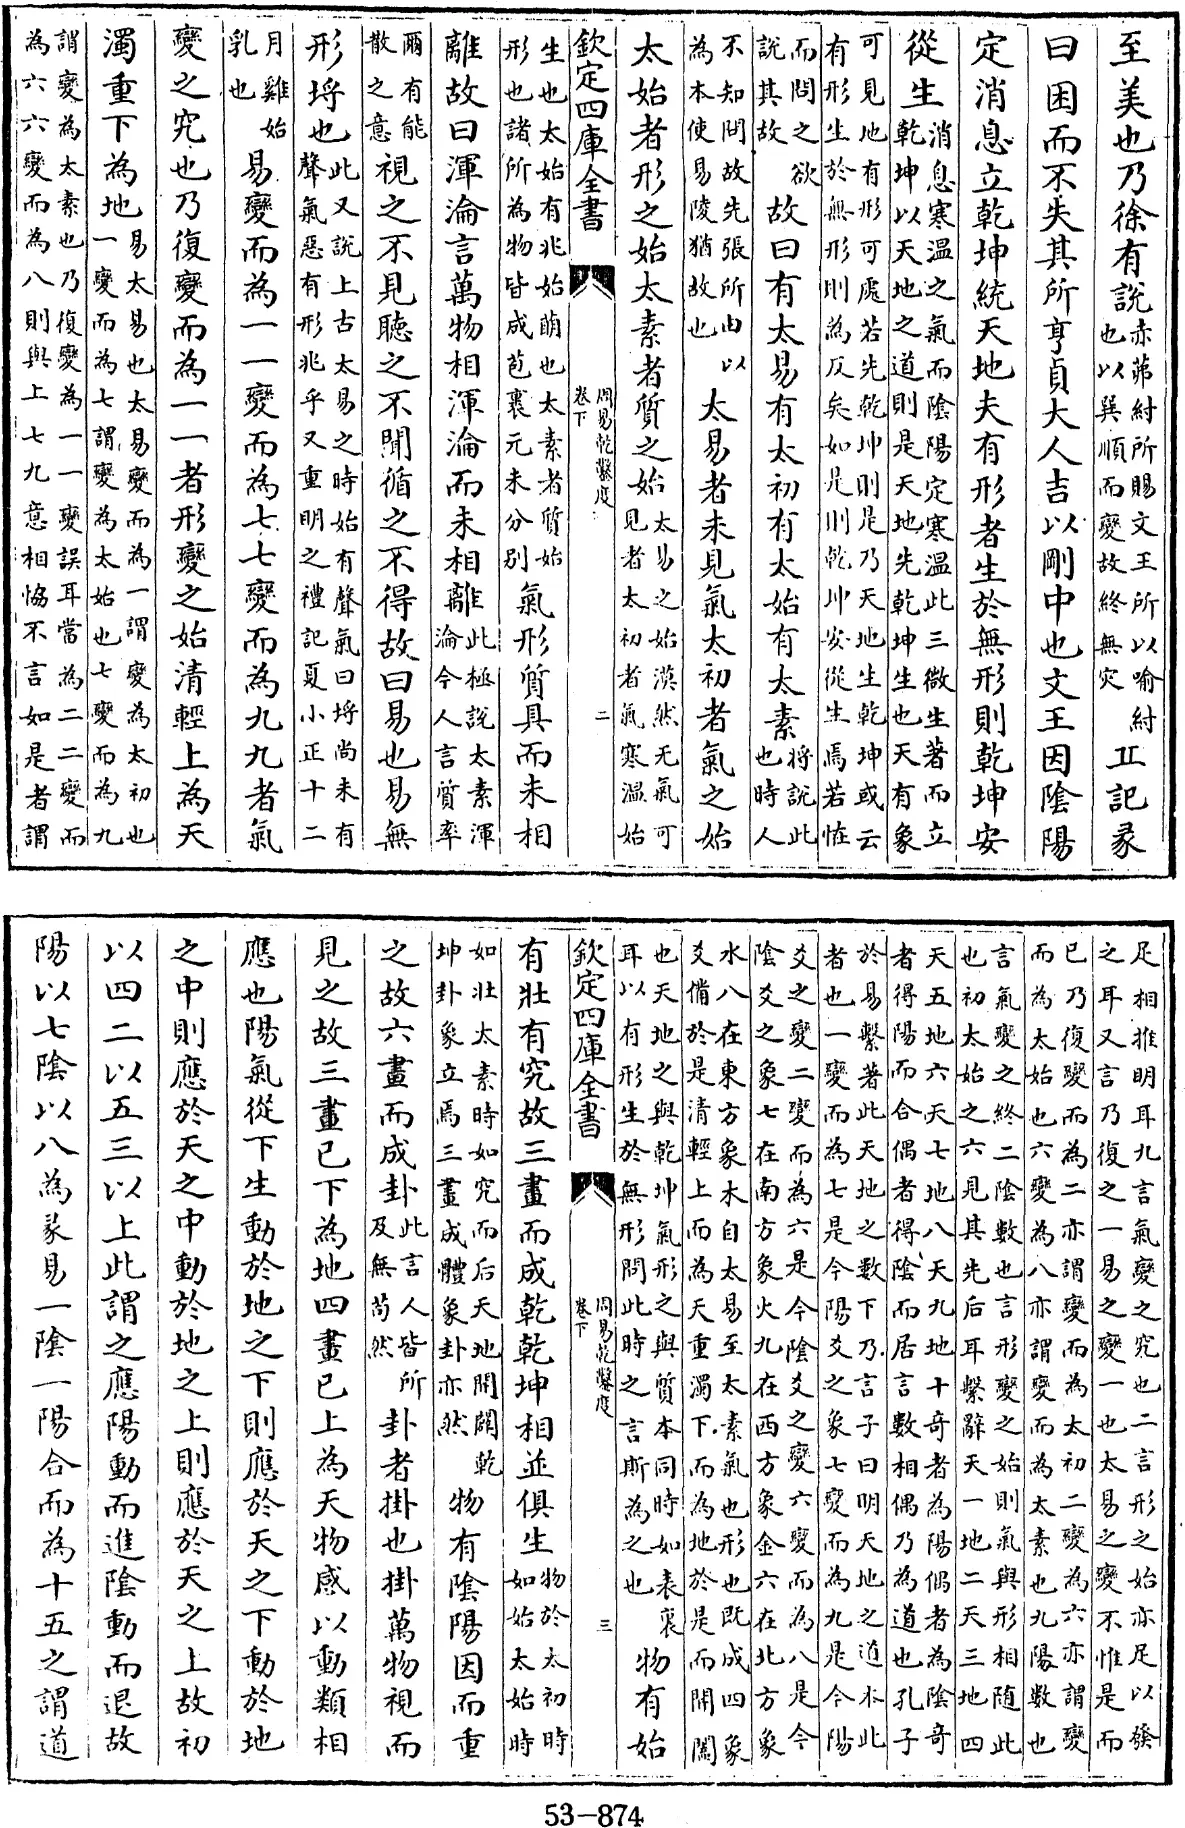 至美也乃徐有説赤茀紂所賜文王所以喻紂也以巽順而變故終無灾丌記彖
曰困而不失其所亨貞大人吉以剛中也文王因陰陽
定消息立乾坤統天地夫有形者生於無形則乾坤安
從生消息寒溫之氣而陰陽定寒溫此三微生著而立乾坤以天地之道則是天地先乾坤生也天有象
可見地有形可處若先乾坤則是乃天地生乾坤或云有形生於無形則為反矣如是則乾坤安從生焉若怪
而問之欲說其故故曰有太易有太初有太始有太素將說此也時人
不知問故先張所由以為本使易陵猶故也太易者未見氣太初者氣之始
太始者形之始太素者質之始太易之始漠然无氣可見者太初者氣寒溫始
欽定四庫全書 周易乾鑿度卷下 二
生也太始有兆始萌也太素者質始形也諸所為物皆成苞裹元未分别氣形質具而未相
離故曰渾淪言萬物相渾淪而未相離此極說太素渾淪今人言質率
爾有能散之意視之不見聽之不聞循之不得故曰易也易無
形埒也此又說上古太易之時始有聲氣曰埒尚未有聲氣惡有形兆乎又重明之禮記夏小正十二
月雞始乳也易變而為一一變而為七七變而為九九者氣
變之究也乃復變而為一一者形變之始清輕上為天
濁重下為地易太易也太易變而為一謂變為太初也一變而為七謂變為太始也七變而為九
謂變為太素也乃復變為一一變誤耳當為二二變而為六六變而為八則與上七九意相恊不言如是者謂
足相推明耳九言氣變之究也二言形之始亦足以發之耳又言乃復之一易之變一也太易之變不惟是而
已乃復變而為二亦謂變而為太初二變為六亦謂變而為太始也六變為八亦謂變而為太素也九陽數也
言氣變之終二陰數也言形變之始則氣與形相隨此也初太始之六見其先后耳繫辭天一地二天三地四
天五地六天七地八天九地十奇者為陽偶者為陰奇者得陽而合偶者得陰而居言數相偶乃為道也孔子
於易繫著此天地之數下乃言子曰明天地之道本此者也一變而為七是今陽爻之象七變而為九是今陽
爻之變二變而為六是今陰爻之變六變而為八是今陰爻之象七在南方象火九在西方象金六在北方象
水八在東方象木自太易至太素氣也形也既成四象爻備於是清輕上而為天重濁下而為地於是而開闔
也天地之與乾坤氣形之與質本同時如表裏耳以有形生於無形問此時之言斯為之也物有始
欽定四庫全書 周易乾鑿度卷下 三
有壯有究故三畫而成乾乾坤相並俱生物於太初時如始太始時
如壯太素時如究而后天地開闢乾坤卦象立焉三畫成體象卦亦然物有陰陽因而重
之故六畫而成卦此言人皆所及無苟然卦者掛也掛萬物視而
見之故三畫已下為地四畫已上為天物感以動類相
應也陽氣從下生動於地之下則應於天之下動於地
之中則應於天之中動於地之上則應於天之上故初
以四二以五三以上此謂之應陽動而進陰動而退故
陽以七陰以八為彖易一陰一陽合而為十五之謂道
53-874